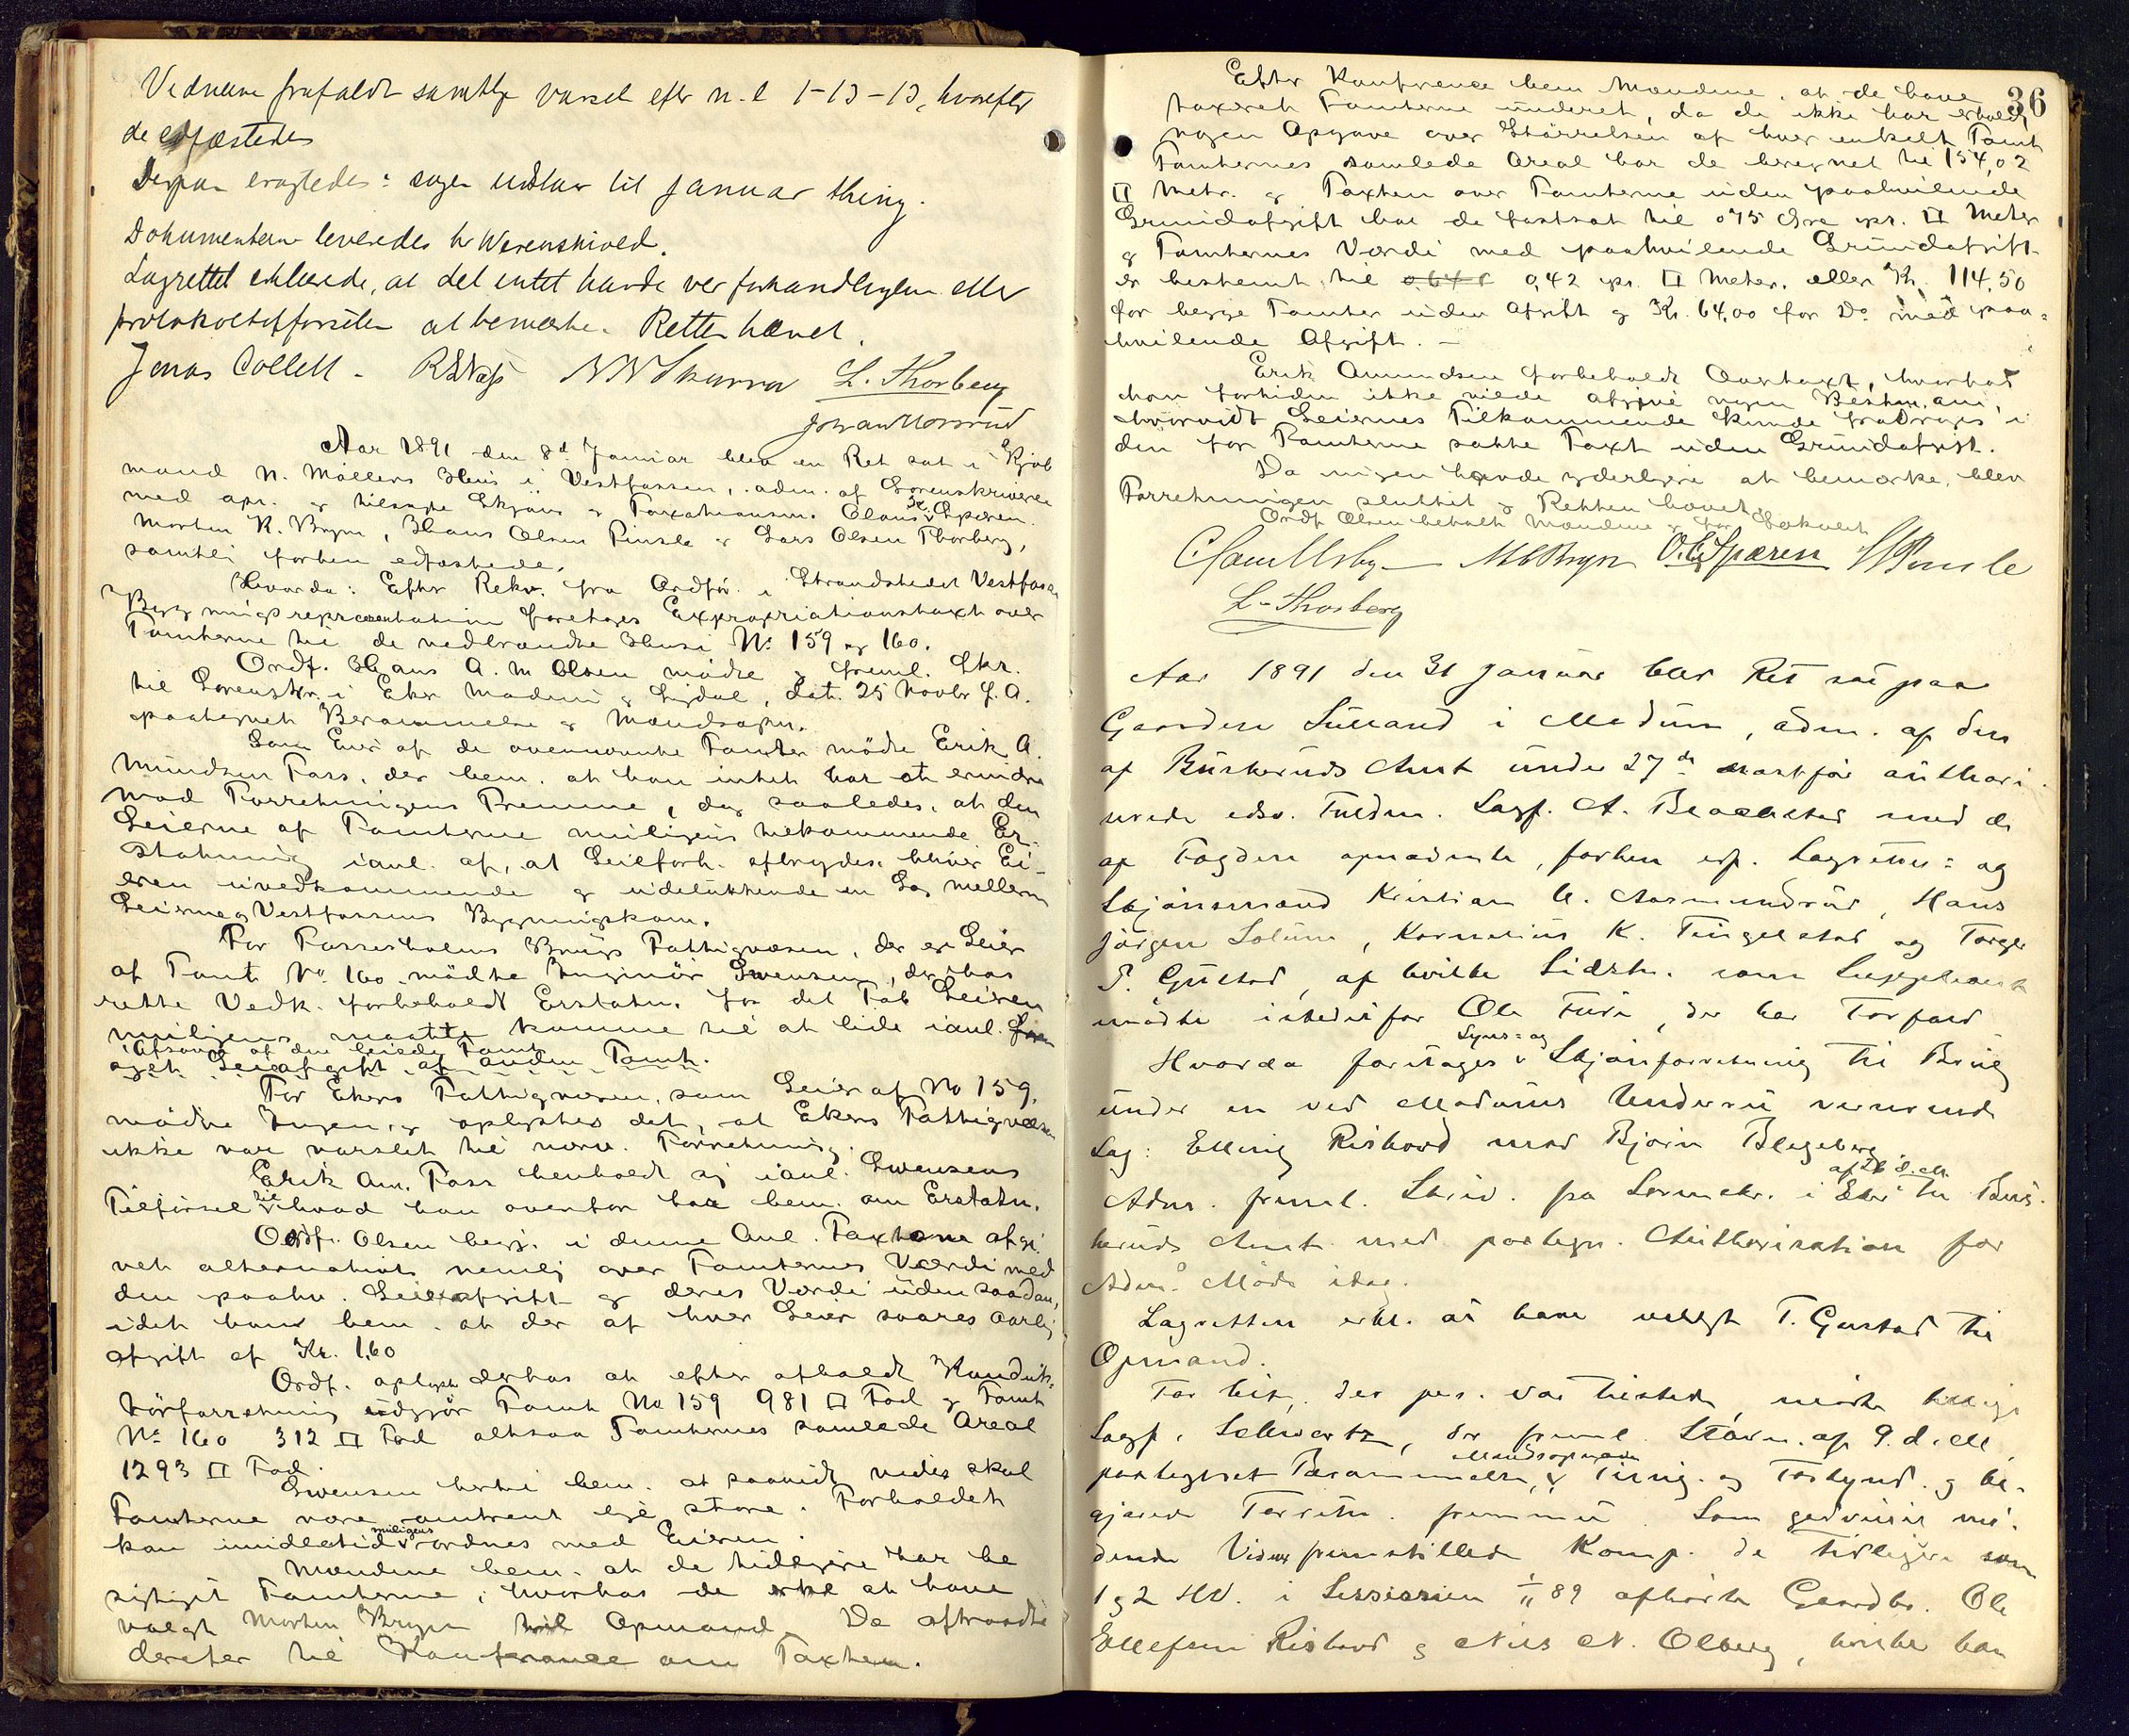 Vidnerne frafaldt samtlige varsel efter N. L. 1-13-13, hvorefter
de edfæstedes
Derpaa eragtedes: sagen udstaar til Januar thing.
Dokumenterne leveredes hr Werenskiold.
Lagrettet erklærede, at det intet havde ved forhandlingen eller
protokoltilførselen at bemærke. Retten hævet.
Jonas Collett - N N Skarra L. Thorberg
Johan Morsrud
Aar 1891 den 8d Januar blev en Ret sat i Kjøb
mand N. Møllers Hus i Vestfossen, adm. af Sorenskriveren
med opn. og tilsagte Skjøns og Taxationsm. Olaus Chr. Sparen.
Morten K. Bryn, Hans Olsen Pinsle og Lars Olsen Thorberg,
samtli forhen edfæstede.
Hvorda: Efter Rekv. fra Ordfør. i Strandstedet Vestfoss.
Bygningsrepræsentation foretoges Expropriationstaxt over
Tomterne til de nedbrændte Huse No 159 og 160.
Ordf. Hans A. M. Olsen mødte og freml. Skr.
til Sorenskr. i Eker Modum og Sigdal, dat. 25 Novbr f. A.
paategnet Berammelse og Mandsopn.
Som Eier af de ovennævnte Tomter mødte Erik A.
mundsen Foss, der bem. at han intet har at erindre
mod Forretningens Fremme, dog saaledes, at den
Leierne af Tomterne muligens tilkommende Er-
statning ianl. af, at Leieforh. afbrydes bliver Ei-
eren uvedkommende og udelukkende en Sag mellem
Leierne og Vestfossens Bygningskom.
For Fossesholms Brugs Fattigvæsen, der er Leier
af Tomt No 160 mødte Ingeniør Swensen, der paa
rette Vedk. forbeholdt Erstatn. for det Tab Leieren
muligens maatte komme til at lide ianl.
Afsavn af den leiede Tomt
øget Leieafgift af anden Tomt.
For Ekers Fattigvæsen, som Leier af No 159,
mødte Ingen, og oplystes det, at Ekers Fattigvæsen
ikke var varslet til nærv. Forretning.
Erik Am. Foss henholdt sig ianl. Swensens
Tilførsel til hvad han ovenfor har bem. om Erstatn.
Ordf. Olsen begj. i denne Anl. Taxterne afgi-
vet alternativt nemlig over Tomternes Værdi med
den paahv. Leieafgift og deres Værdi uden saadan,
idet han bem. at der af hver Leier svares aarlig
afgift af Kr. 1,60
Ordf. oplyste derhos at efter afholdt Konduk-
tørforretning udgjør Tomt No 159 981 □ Fod og Tomt
No 160 312 □ Fod altsaa Tomternes samlede Areal
1293 □ Fod.
Swensen hertil bem. at saavidt vides skal
Tomterne være omtrent lige store. Forholdet
kan imidlertid muligens ordnes med Eieren.
Mændene bem. at de tidligere har be
sigtiget Tomterne, hvorhos de erkl. at have
valgt Morten Bryn til Opmand. De aftraadte
derefter til Konference om Taxten.
36
Efter Konference bem Mændene, at de have
taxeret Tomterne underet, da de ikke har erholdt
nogen Opgave over Størrelsen af hver enkelt Tomt
Tomternes samlede Areal har de beregnet til 154,02
□ Metr. og Taxten over Tomterne uden paahvilende
Grundafgift har de fastsat til 075 Øre pr. □ Meter
og Tomternes Værdi med paahvilende Grundafgift
er bestemt til 0,42 pr. □ Meter. eller Kr. 114,50
for begge Tomter uden Afgift og Kr. 64,00 for Do med paa=
hvilende Afgift. -
Erik Amundsen forbeholdt Overtaxt, hvorhos
han fortiden ikke vilde afgive nogen Bestem. om,
hvorvidt Leiernes Tilkommende kunde fradrages i
den for Tomterne satte Taxt uden Grundafgift.
Da ingen havde yderligere at bemærke, blev
Forretningen sluttet og Retten hævet.
Ordf. Olsen betalte Mændene og for Lokalet
M K Bryn O. C. Sparen H Pinsle
L. Thorberg
Aar 1891 den 31 Januar blev Ret sat paa
Gaarden Sulland i Modum, adm. af den
af Buskeruds Amt under 27de næstfør authori
serede edsv. Fuldm. Sagf. A. Braaestad med de
af Fogden opnævnte, forhen edf. Lagrettes= og
Skjønsmænd Kristian A. Aasmundrud, Hans
Jørgen Solum, Kornelius K. Tingelstad og Torger
T. Gustad, af hvilke Sidstn. som Suppleant
mødte istedetfor Ole Furu, der har Forfald
Hvorda foretoges Syns= og Skjønforretning til Brug
under en ved Modums Underret verserende
Sag: Elling Risbord mod Bjørn Blegeberg
Adm. freml. Skriv. fra Sorenskr. i Eker af 26 d. M. til Bus-
keruds Amt med paategn. Authorisation for
Adm. Møde idag.
Lagretten erkl. at have valgt T. Gustad til
Opmand.
For Cit., der per. var tilstede, mødte
Sagf. Schwartz, der freml. Stævn. af 9. d. M
paategnet Berammelse, Mandsopnævn. og Forkynd. og be-
gjærede Forretn. fremmet. Som godvillig mø-
dende Vidner fremstilledes Komp. de tidligere som
1 og 2 HV. i Sessionen 1/11 89 afhørte Gaardbr. Ole
Ellefsen Risbord og Nils N. Olberg, hvilke han